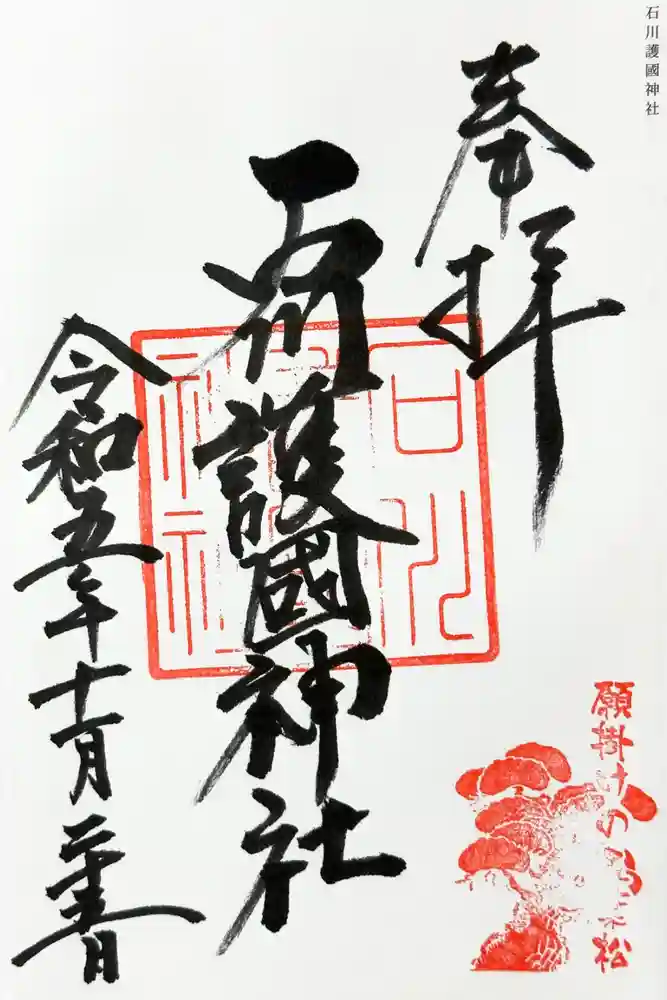 石川護國神社
奉拝
石川護國神社
令和五年十一月二十五日
願掛けの
松